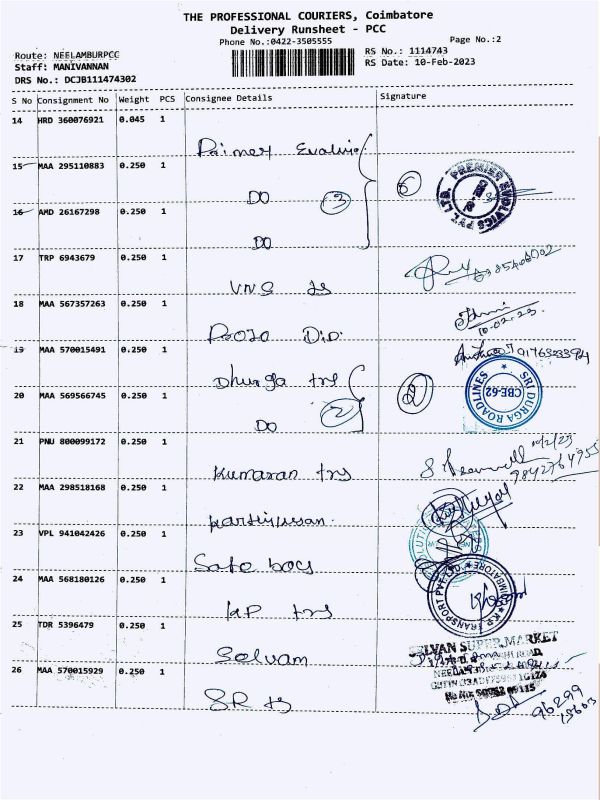 THE PROFESSIONAL COURIERS, Coimbatore
Delivery Runsheet - PCC
Phone No.:0422-3505555
Page No.:2
Route: NEELAMBURPCC
RS No.: 1114743
Staff: MANIVANNAN
RS Date: 10-Feb-2023
DRS No.: DCJB111474302
S No Consignment No Weight PCS Consignee Details Signature
14 HRD 360076921 0.045 1
15 MAA 295110883 0.250 1
DO 3 6
PREMIER EVOLVICS PVT. LTD.
16 AMD 26167298 0.250 1
DO
17 TRP 6943679 0.250 1
VNS
18 MAA 567357263 0.250 1
10.02.23
19 MAA 570015491 0.250 1
Dhurga trs
SRI DURGA ROADLINES
CBE-62
20 MAA 569566745 0.250 1
DO 2 2
21 PNU 800099172 0.250 1
10/2/23
Kumaran trs
9842764955
22 MAA 298518168 0.250 1
23 VPL 941042426 0.250 1
Safe box
24 MAA 568180126 0.250 1
KP trs
K.P. TRANSPORT PVT. LTD. COIMBATORE
25 TDR 5396479 0.250 1
Selvam
SUPER MARKET
26 MAA 570015929 0.250 1
SR
96299